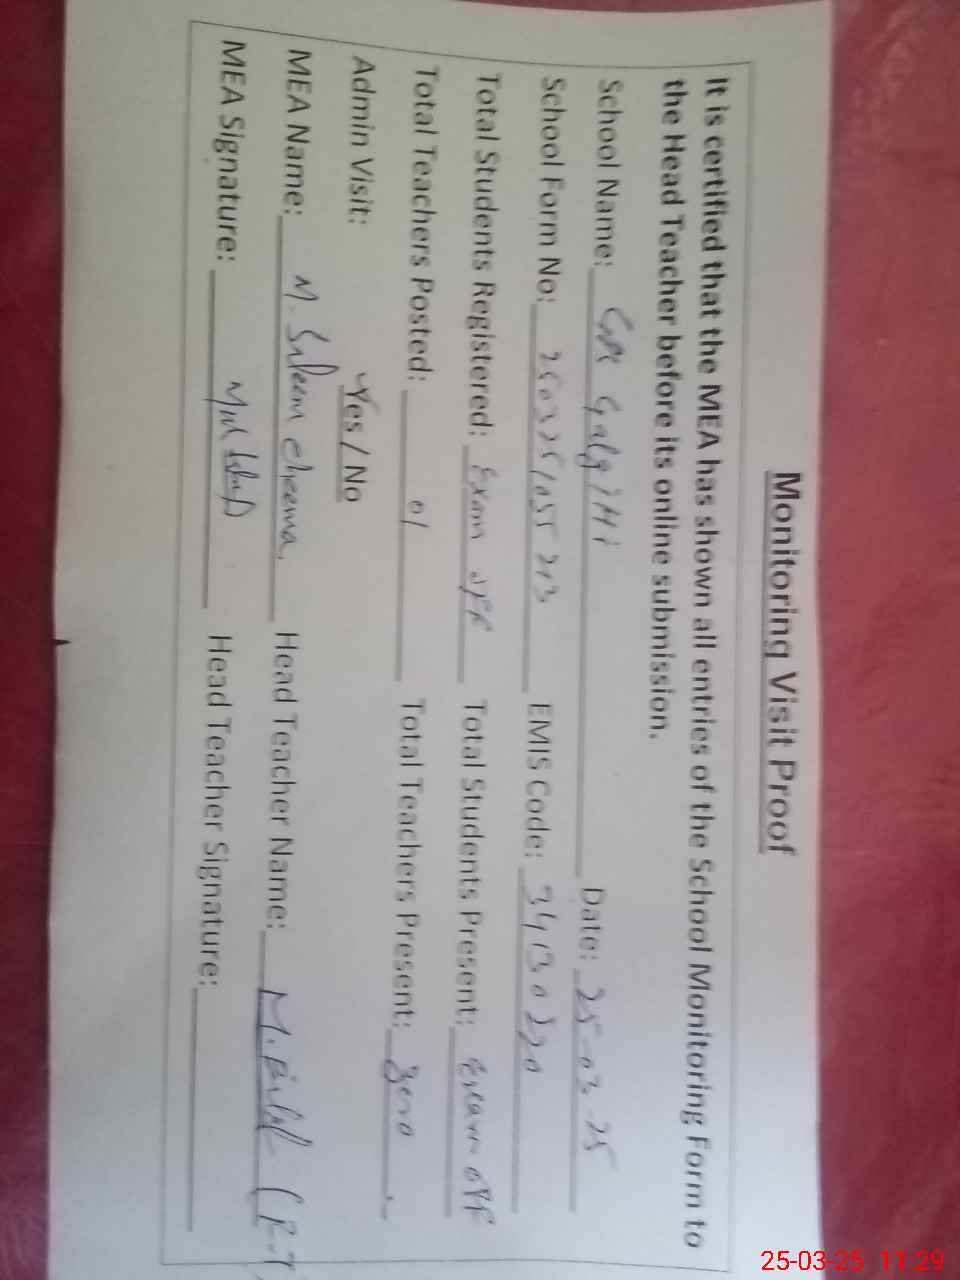 Monitoring Visit Proof
It is certified that the MEA has shown all entries of the School Monitoring Form to
the Head Teacher before its online submission.
School Name: Date: 25-03-25
School Form No: EMIS Code: 34130220
Total Students Registered: Exam off Total Students Present: Exam off
Total Teachers Posted: 01 Total Teachers Present: Zero
Admin Visit: Yes / No
MEA Name: M. Saleem cheema. Head Teacher Name: M. Bilal
MEA Signature: Head Teacher Signature:
25-03-25 11:29